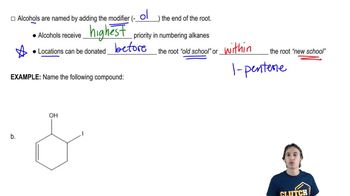 □ Alcohols are named by adding the modifier (- ol ) the end of the root.
● Alcohols receive highest priority in numbering alkanes
● Locations can be donated before the root "old school" or within the root "new school"
1-pentene
EXAMPLE: Name the following compound:
OH
b.
I
CLUTCH